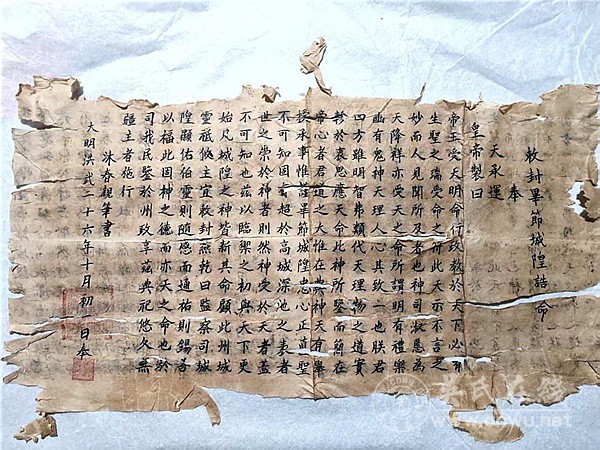 敕封畢節城隍誥命
奉
天永運
皇帝製曰
帝王受天明命行政教於天下必有
生聖之瑞受命之符此天示不言之
妙而人見聞所及者也神司淑慝為
天降祥亦受天之命所謂明有禮樂
幽有鬼神天理人心其致一也朕君
四方雖明智弗類代天理物之道實
於衷思應天命此神所鑒而簡在
帝心者君道之大惟在典神天有舉
承事惟謹畢節城隍忠心正直聖
不可知固有超於高城深池之表者
世之崇於神者則然神受於天者蓋
不可知也茲以臨禦之初與天下更
始凡城隍之神皆新其命顧此州城
靈祗攸主宜敕封燕乾曰監察司城
隍顯佑伯靈則隨感而通祐則錫善
以福此固神之德而亦天之命也於
司我民鑒於州政享茲典祀悠久無
疆主者施行
沐春親筆書
大明洪武二十六年十月初一日奉
吴氏在线